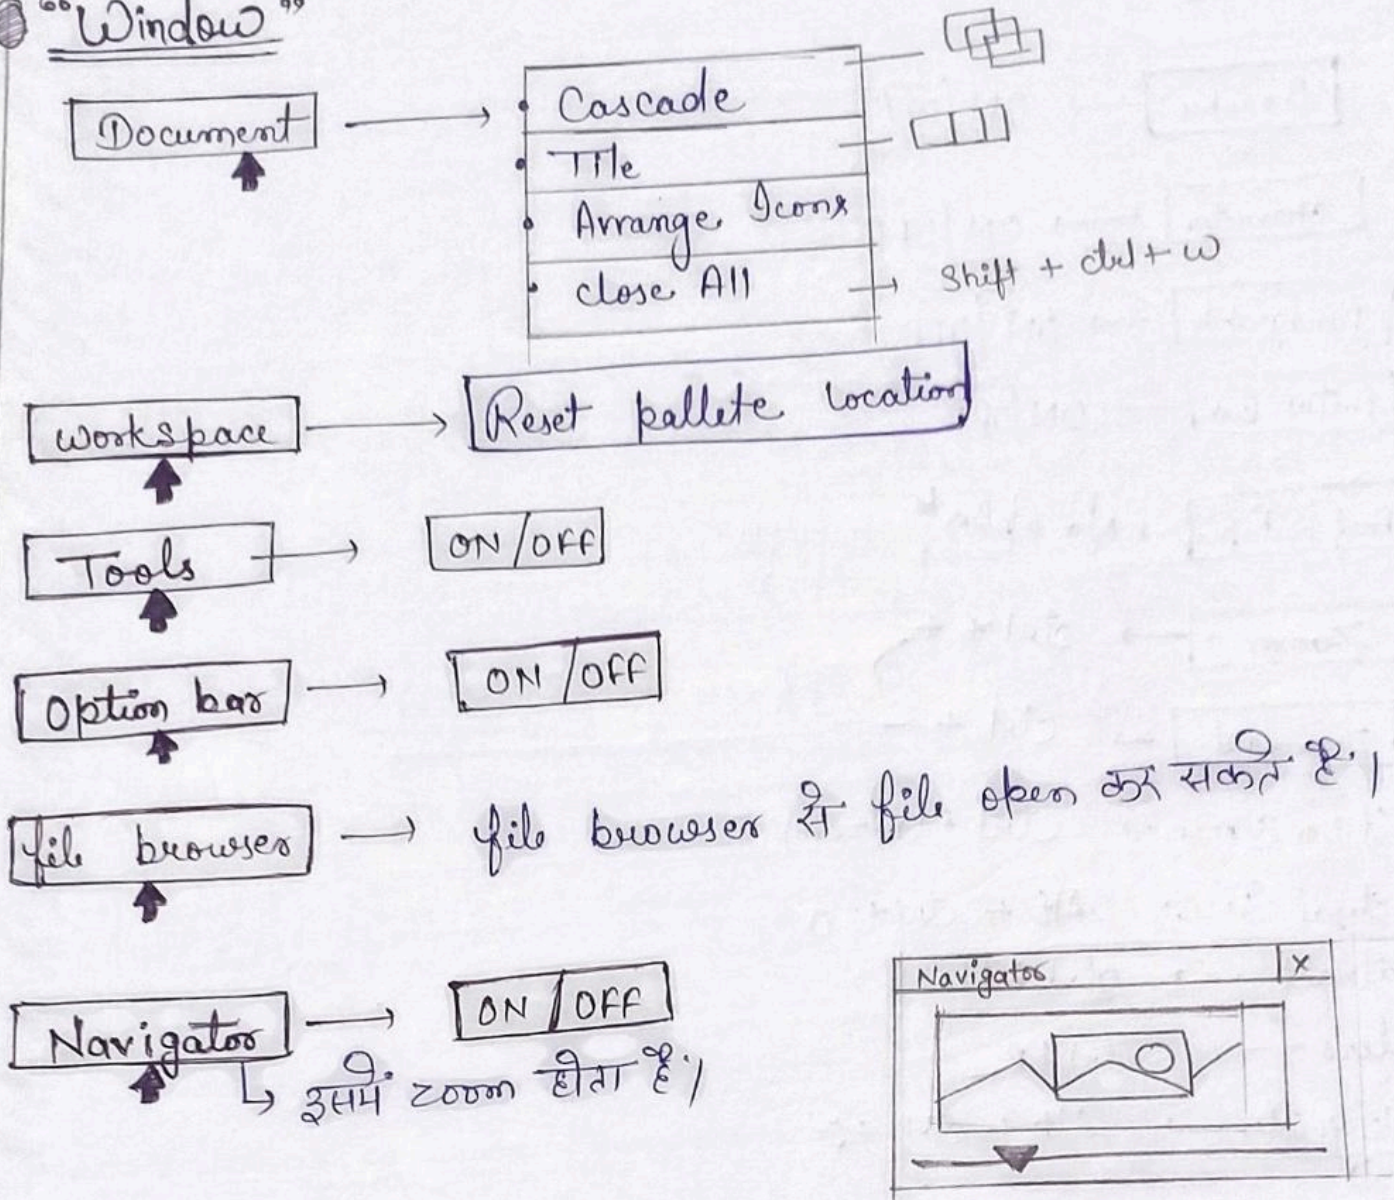 "Window"
Document → Cascade
Tile
Arrange Icons
close All → Shift + ctrl + w
workspace → Reset pallete location
Tools → ON/OFF
Option bar → ON/OFF
file browser → file browser से file open कर सकते है।
Navigator → ON/OFF
↳ इसमें zoom होता है।
Navigator X